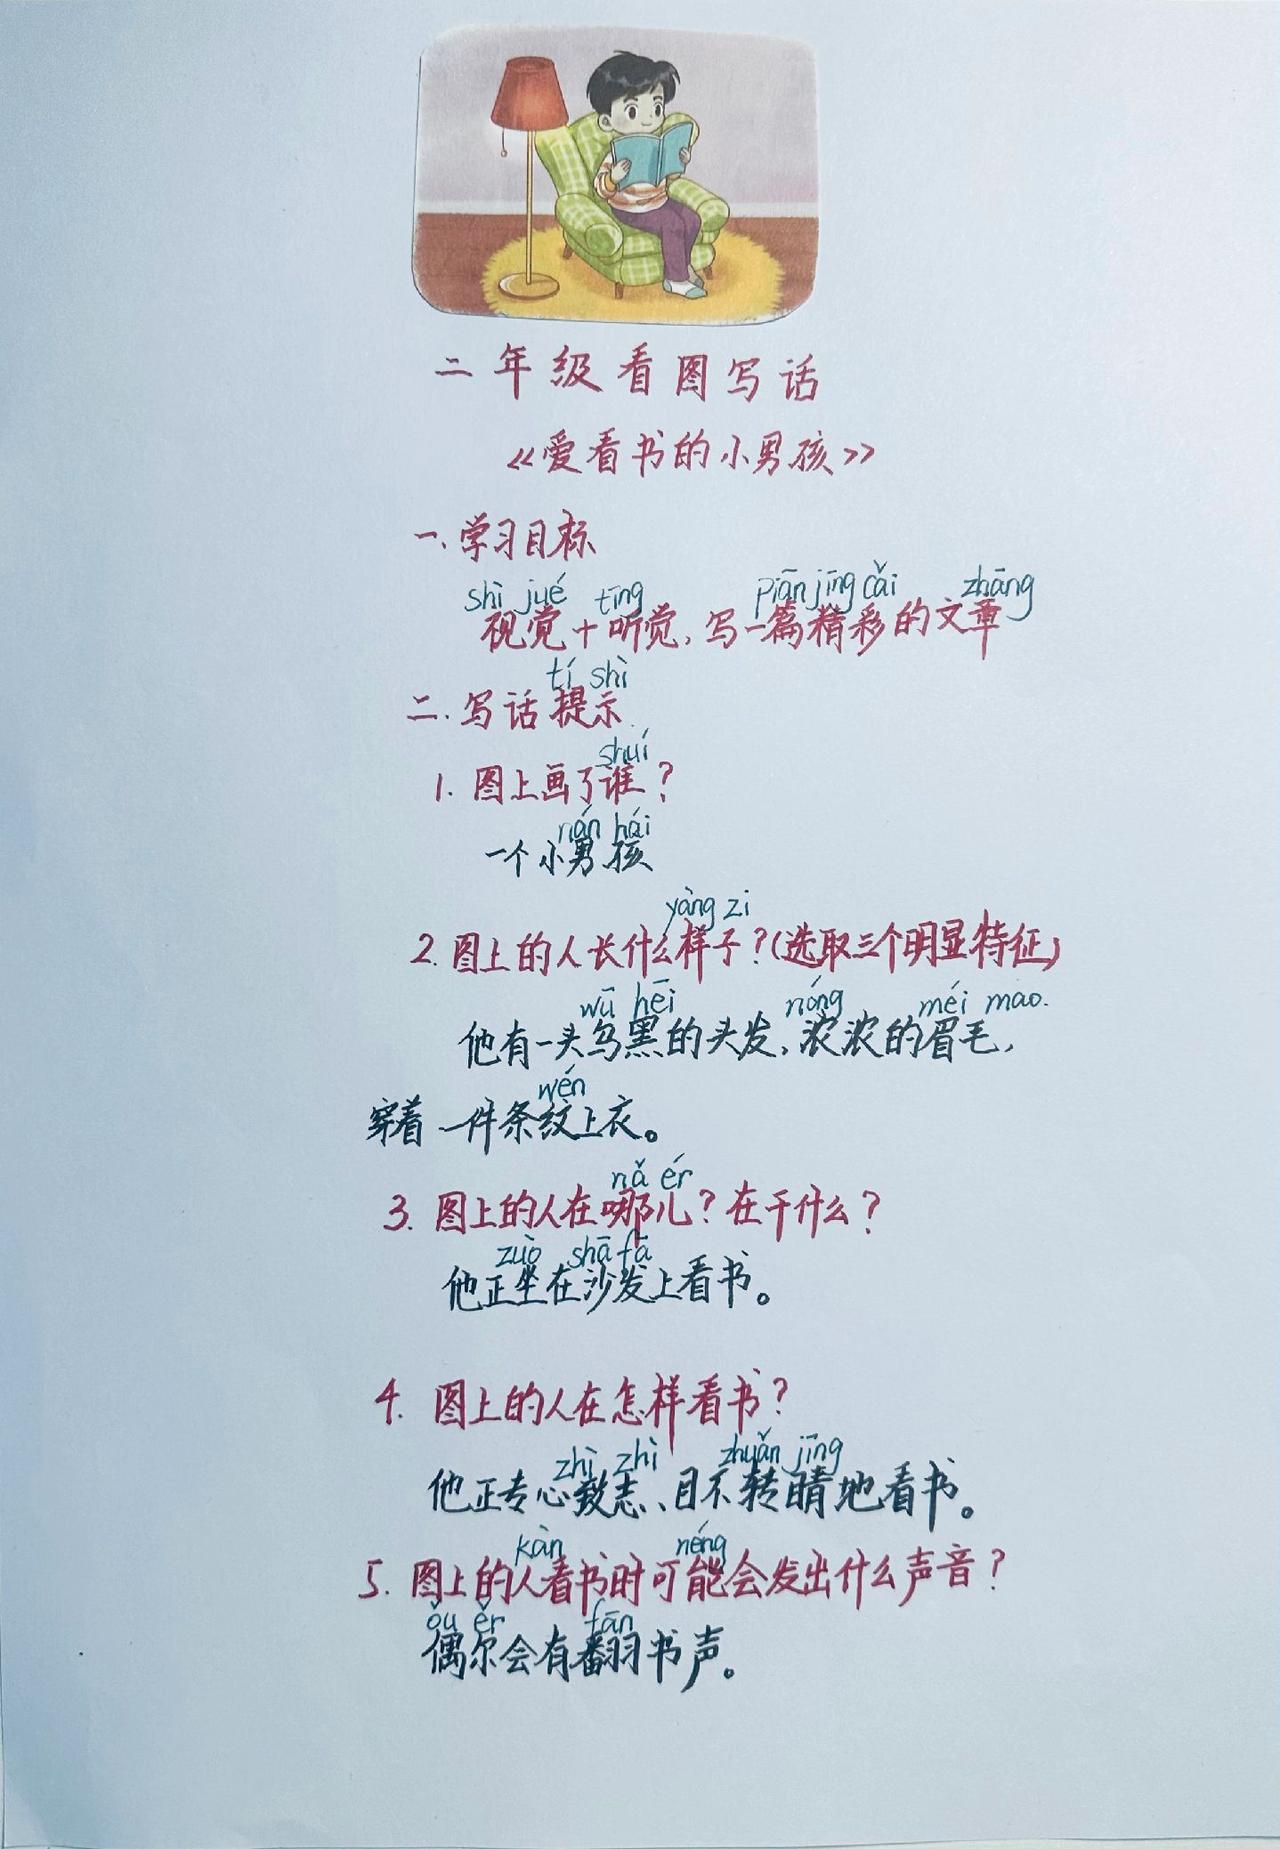 二年级看图写话
《爱看书的小男孩》
一、学习目标
shì jué tīng piān jīng cǎi zhāng
视觉+听觉，写一篇精彩的文章
tí shì
二、写话提示
shuí
1. 图上画了谁？
nán hái
一个小男孩
yàng zi
2. 图上的人长什么样子？（选取三个明显特征）
wū hēi nóng méi mao
他有一头乌黑的头发，浓浓的眉毛，
wén
穿着一件条纹上衣。
nǎ ér
3. 图上的人在哪儿？在干什么？
zuò shā fā
他正坐在沙发上看书。
4. 图上的人在怎样看书？
zhì zhì zhuǎn jīng
他正专心致志、目不转睛地看书。
kàn néng
5. 图上的人看书时可能会发出什么声音？
ǒu ěr fān
偶尔会有翻书声。